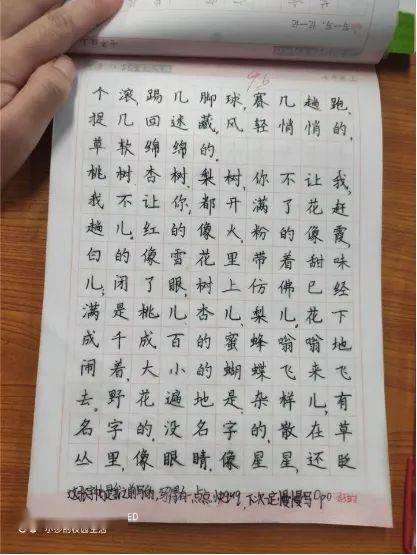 96
个滚,踢几脚球,赛几趟跑,
捉几回迷藏。风轻悄悄的,
草软绵绵的.
桃树杏树.梨树,你不让我,
我不让你,都开满了花赶
趟儿.红的像火,粉的像霞,
白的像雪花里带着甜味
儿,闭了眼,树上仿佛已经
满是桃儿杏儿,梨儿,花下
成千成百的蜜蜂嗡嗡地
闹着,大小的蝴蝶飞来飞
去.野花遍地是.杂样儿,有
名字的,没名字的,散在草
丛里,像眼睛,像星星,还眨